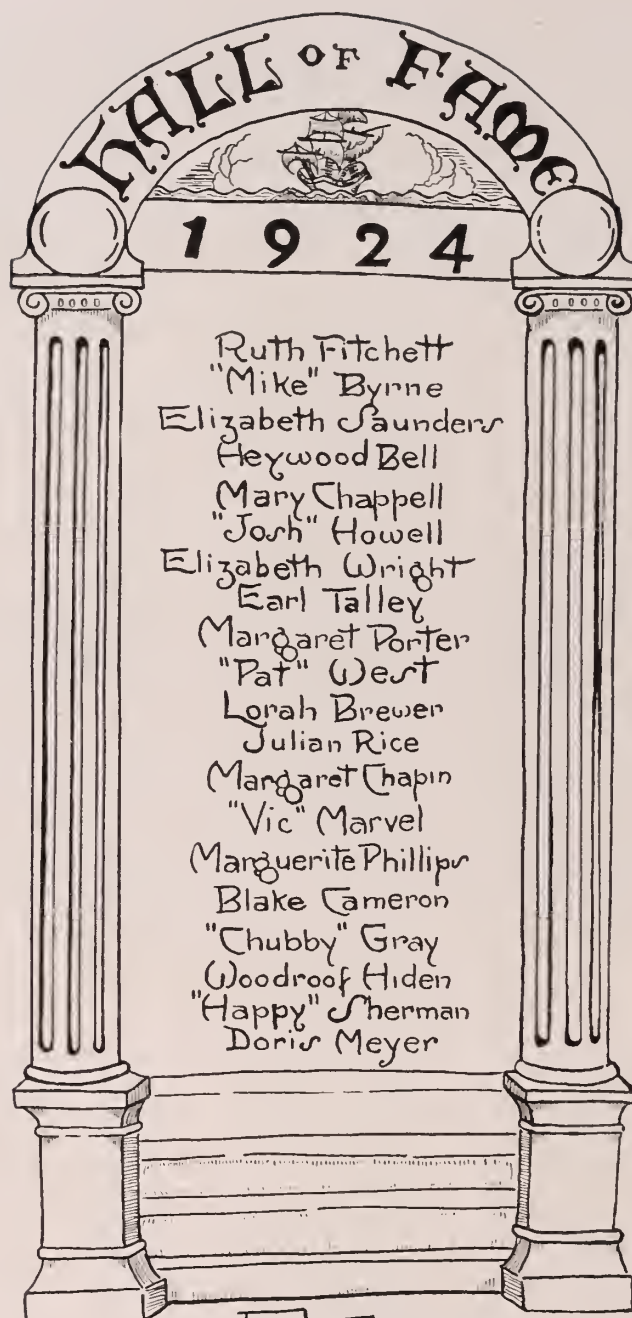 HALL OF FAME
1924
Ruth Fitchett
"Mike" Byrne
Elizabeth Saunders
Heywood Bell
Mary Chappell
"Josh" Howell
Elizabeth Wright
Earl Talley
Margaret Porter
"Pat" West
Lorah Brewer
Julian Rice
Margaret Chapin
"Vic" Marvel
Marguerite Phillips
Blake Cameron
"Chubby" Gray
Woodroof Hiden
"Happy" Sherman
Doris Meyer